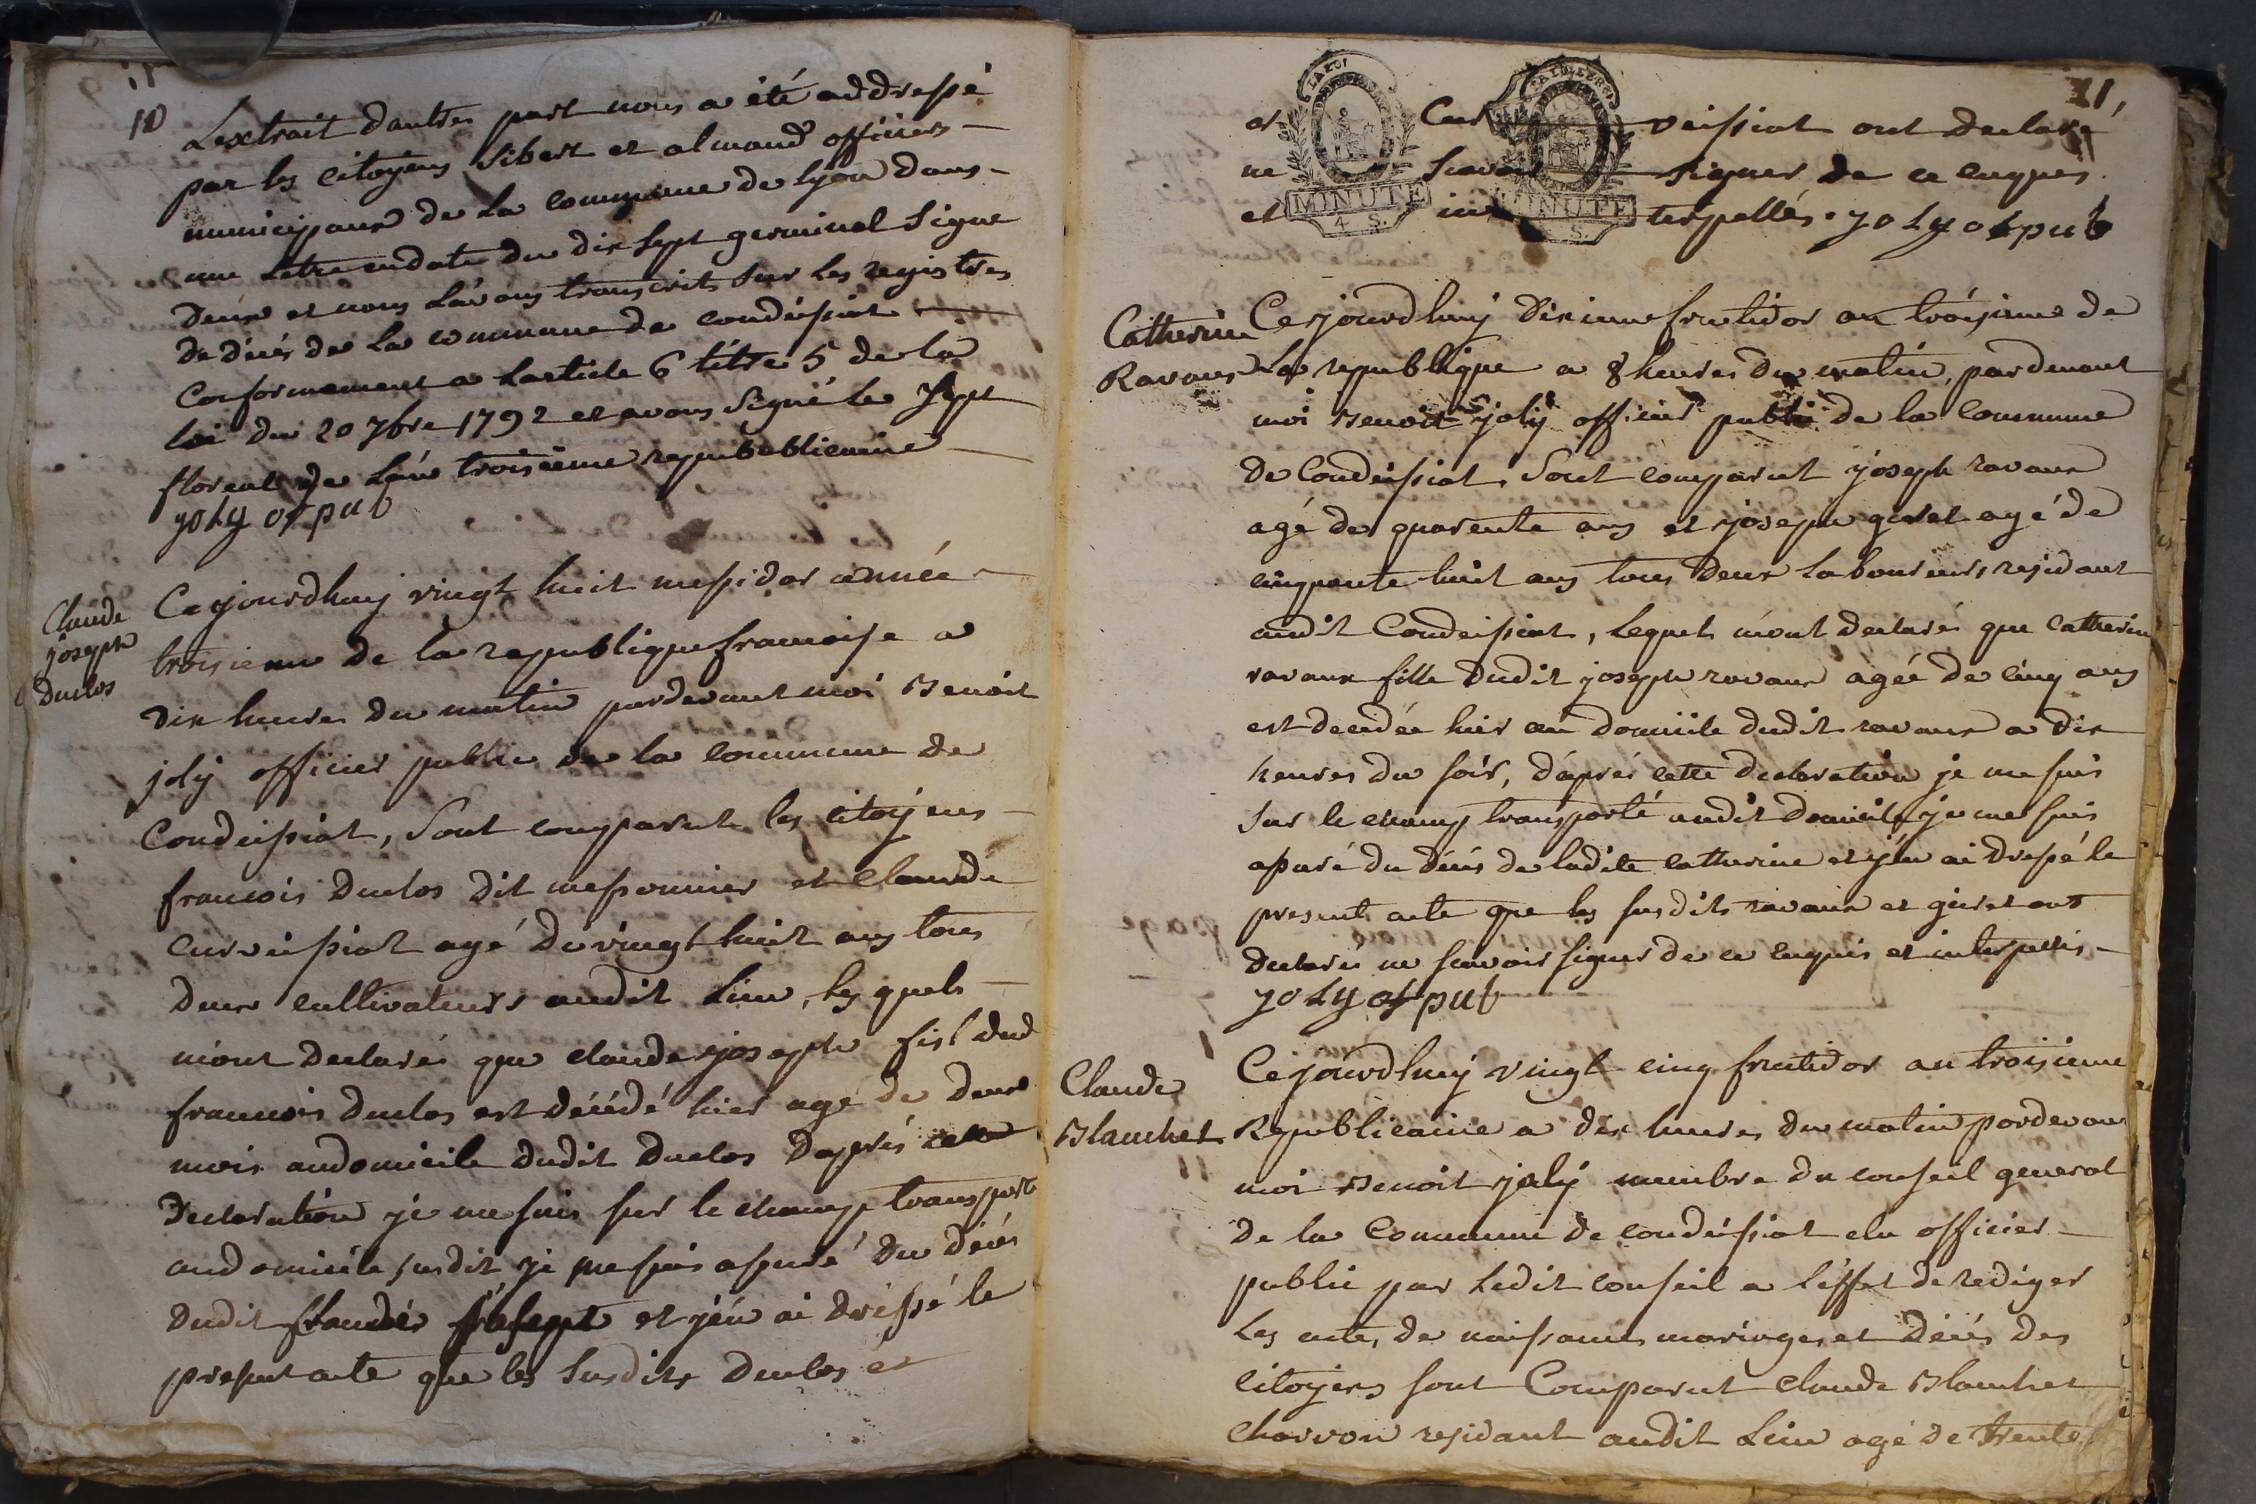 10
Lextrait dautres part nous a été addressé
par les citoyens Sibert et almand officiers
municipaux de La commune de lyon dans
une Lettre en date du dix sept germinal Signe
Deux et nous Lavons transcrit Sur Les registres
De décés de La commune de condeissiat
Conformement a Larticle 6 titre 5 de la
Loi du 20 7bre 1792 et avons Signé le Sept
floreal de Lan troisieme republicaine
joly of pub
Claude
joseph
Duclos
Cejourdhuy vingt huit messidor année
troisieme de la republique francoise a
Dix heures du matin pardevant moi Benoit
joly officier public de la commune de
Condeissiat, Sont comparut les citoyens
francois Duclos dit messonnier et Claude
Curveissiat agé de vingt huit ans tous
Deux cultivateurs audit Lieu, les quels
m'ont declarés que claude joseph fisl dud
francois Duclos est décédé hier age de deux
mois audomicile dudit Duclos Daprés cette
Declaration je me suis sur le champ transporté
audomicile susdit je me suis assuré du décés
Dudit Claude joseph et j'en ai dressé le
present acte que les susdits Duclos et
11
Curveissiat ont declaré
ne Scavoir signer de ce enquis
et interpellés. joly of pub
Catherine
Ravaux
Cejourdhuy Dixieme fructidor an troisieme de
La republique a 8 heures du matin, pardevant
moi Benoit joly officier public de la Commune
De Condeissiat Sont comparut joseph ravaux
agé de quarente ans et joseph giret agé de
cinquante huit ans tous Deux laboureurs residant
audit Condeissiat, lequels m'ont declarés que catherine
ravaux fille dudit joseph ravaux agée de cinq ans
est decedée hier au domicile dudit ravaux a dix
heures du soir, d'aprés cette declaration je me suis
sur le champ transporté audit domicile je me suis
assuré du décés de ladite catherine et j'en ai dressé le
present acte que les susdits ravaux et giret ont
declarés ne scavoir signer de ce enquis et interpellés
joly of pub
Claude
Blanchet
Cejourdhuy vingt cinq fructidor an troisieme
Republicaine a dix heures du matin pardevant
moi Benoit joly membre du conseil general
de la Commune de condeissiat elu officier
public par ledit conseil a l'effet de rediger
Les actes de naissances mariages et décés des
citoyens sont Comparut Claude Blanchet
Charron residant audit Lieu age de trente
LA LOI
MINUTE
4 S.
MINUTE
S.